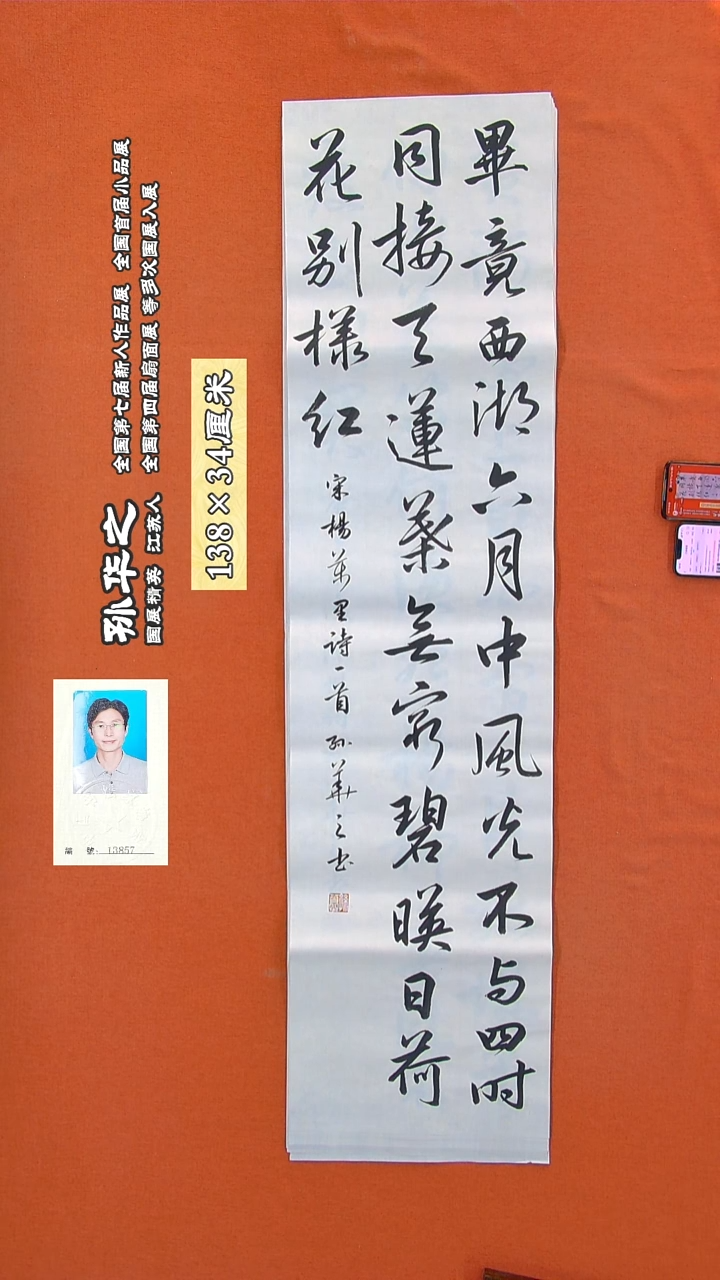 畢竟西湖六月中風光不与四时
同接天蓮葉無窮碧暎日荷
花别樣红
宋楊萬里詩一首 孙華之书
138×34厘米
全国第七届新人作品展 全国首届小品展
全国第四届扇面展 等多次国展入展
孙华之
国展精英 江苏人
編 號: 13857